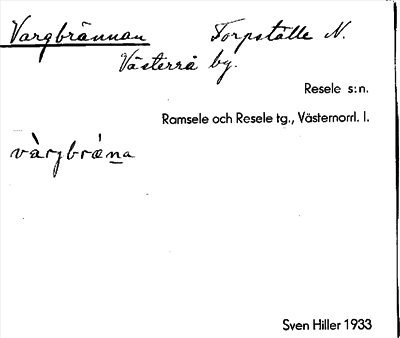 Vargbrännan Torpställe N.
Västerrå by.
Resele s:n.
Ramsele och Resele tg., Västernorrl. l.
vàrjbrǽna
Sven Hiller 1933